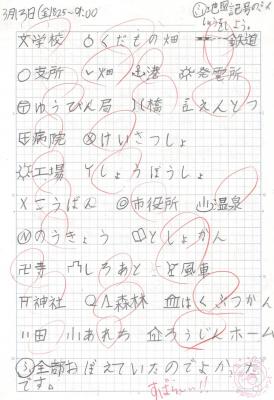 3月13日(金)8:25～9:00
㋱地図記号のふくしゅうをしよう。
文学校 くだもの畑 鉄道
支所 畑 港 発電所
ゆうびん局 橋 えんとつ
病院 けいさつしょ
工場 しょうぼうしょ
X こうばん ◎市役所 温泉
のうきょう としょかん
卍寺 しろあと 風車
神社 森林 はくぶつかん
田 あれち ろうじんホーム
全部おぼえていたのでよかったです。
すばらしい!!